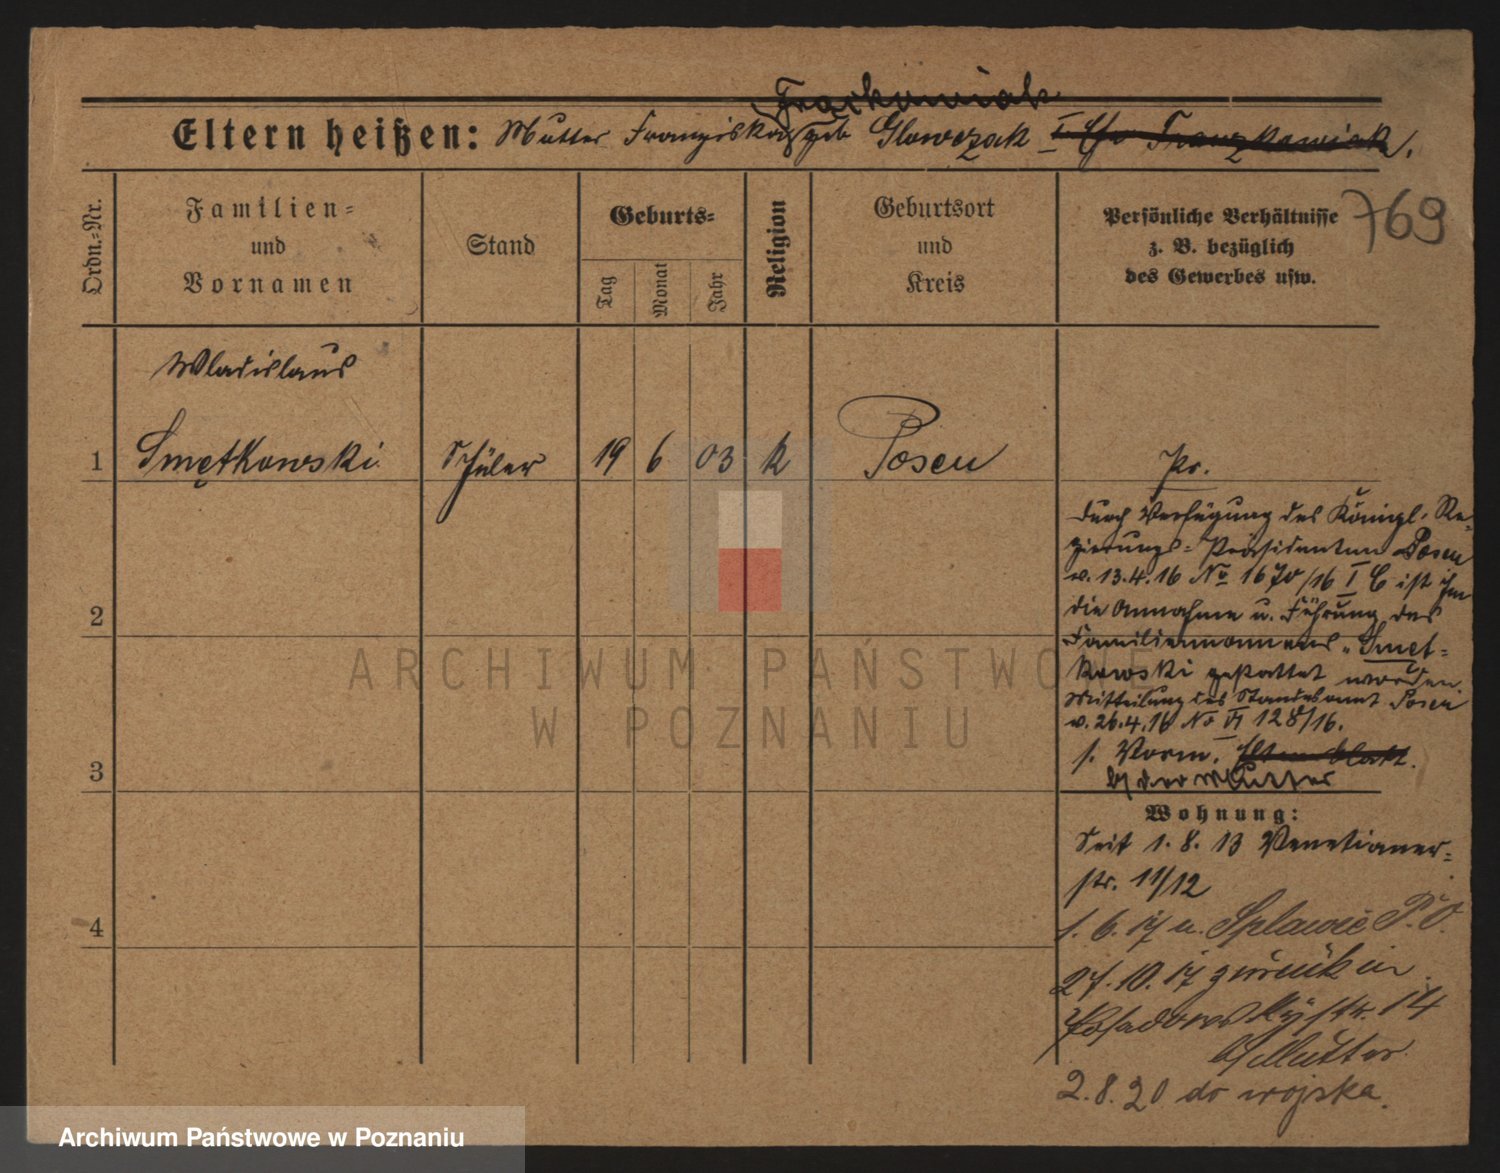 Frackowiak
Eltern heißen: Mutter Franziska geb Glowczak I. Ehe Franzkowiak.
769
Ordn.-Nr.
Familien-
und
Vornamen
Stand
Geburts-
Tag
Monat
Jahr
Religion
Geburtsort
und
Kreis
Persönliche Verhältnisse
z. B. bezüglich
des Gewerbes usw.
Wladislaus
1 Smętkowski Schüler 19 6 03 k Posen
Pr.
Durch Verfügung des Königl. Re-
gierungs-Präsidenten Posen
v. 13.4.16 No 1670/16 I C ist ihm
die Annahme u. Führung des
Familiennamens „Smęt-
kowski gestattet worden.
Mitteilung des Standesamt Posen
v. 26.4.16 No VI 128/16.
s. Verm. Elternblatt.
b/ der Mutter
2
3
4
Wohnung:
Seit 1. 8. 13 Venetianer-
str. 11/12
1. 6. 17 n. Splawie P. O.
27. 10. 17 zurück in
Posadowskystr. 14
b/ Mutter.
2. 8. 20 do wojska.
ARCHIWUM PAŃSTWOWE
W POZNANIU
Archiwum Państwowe w Poznaniu